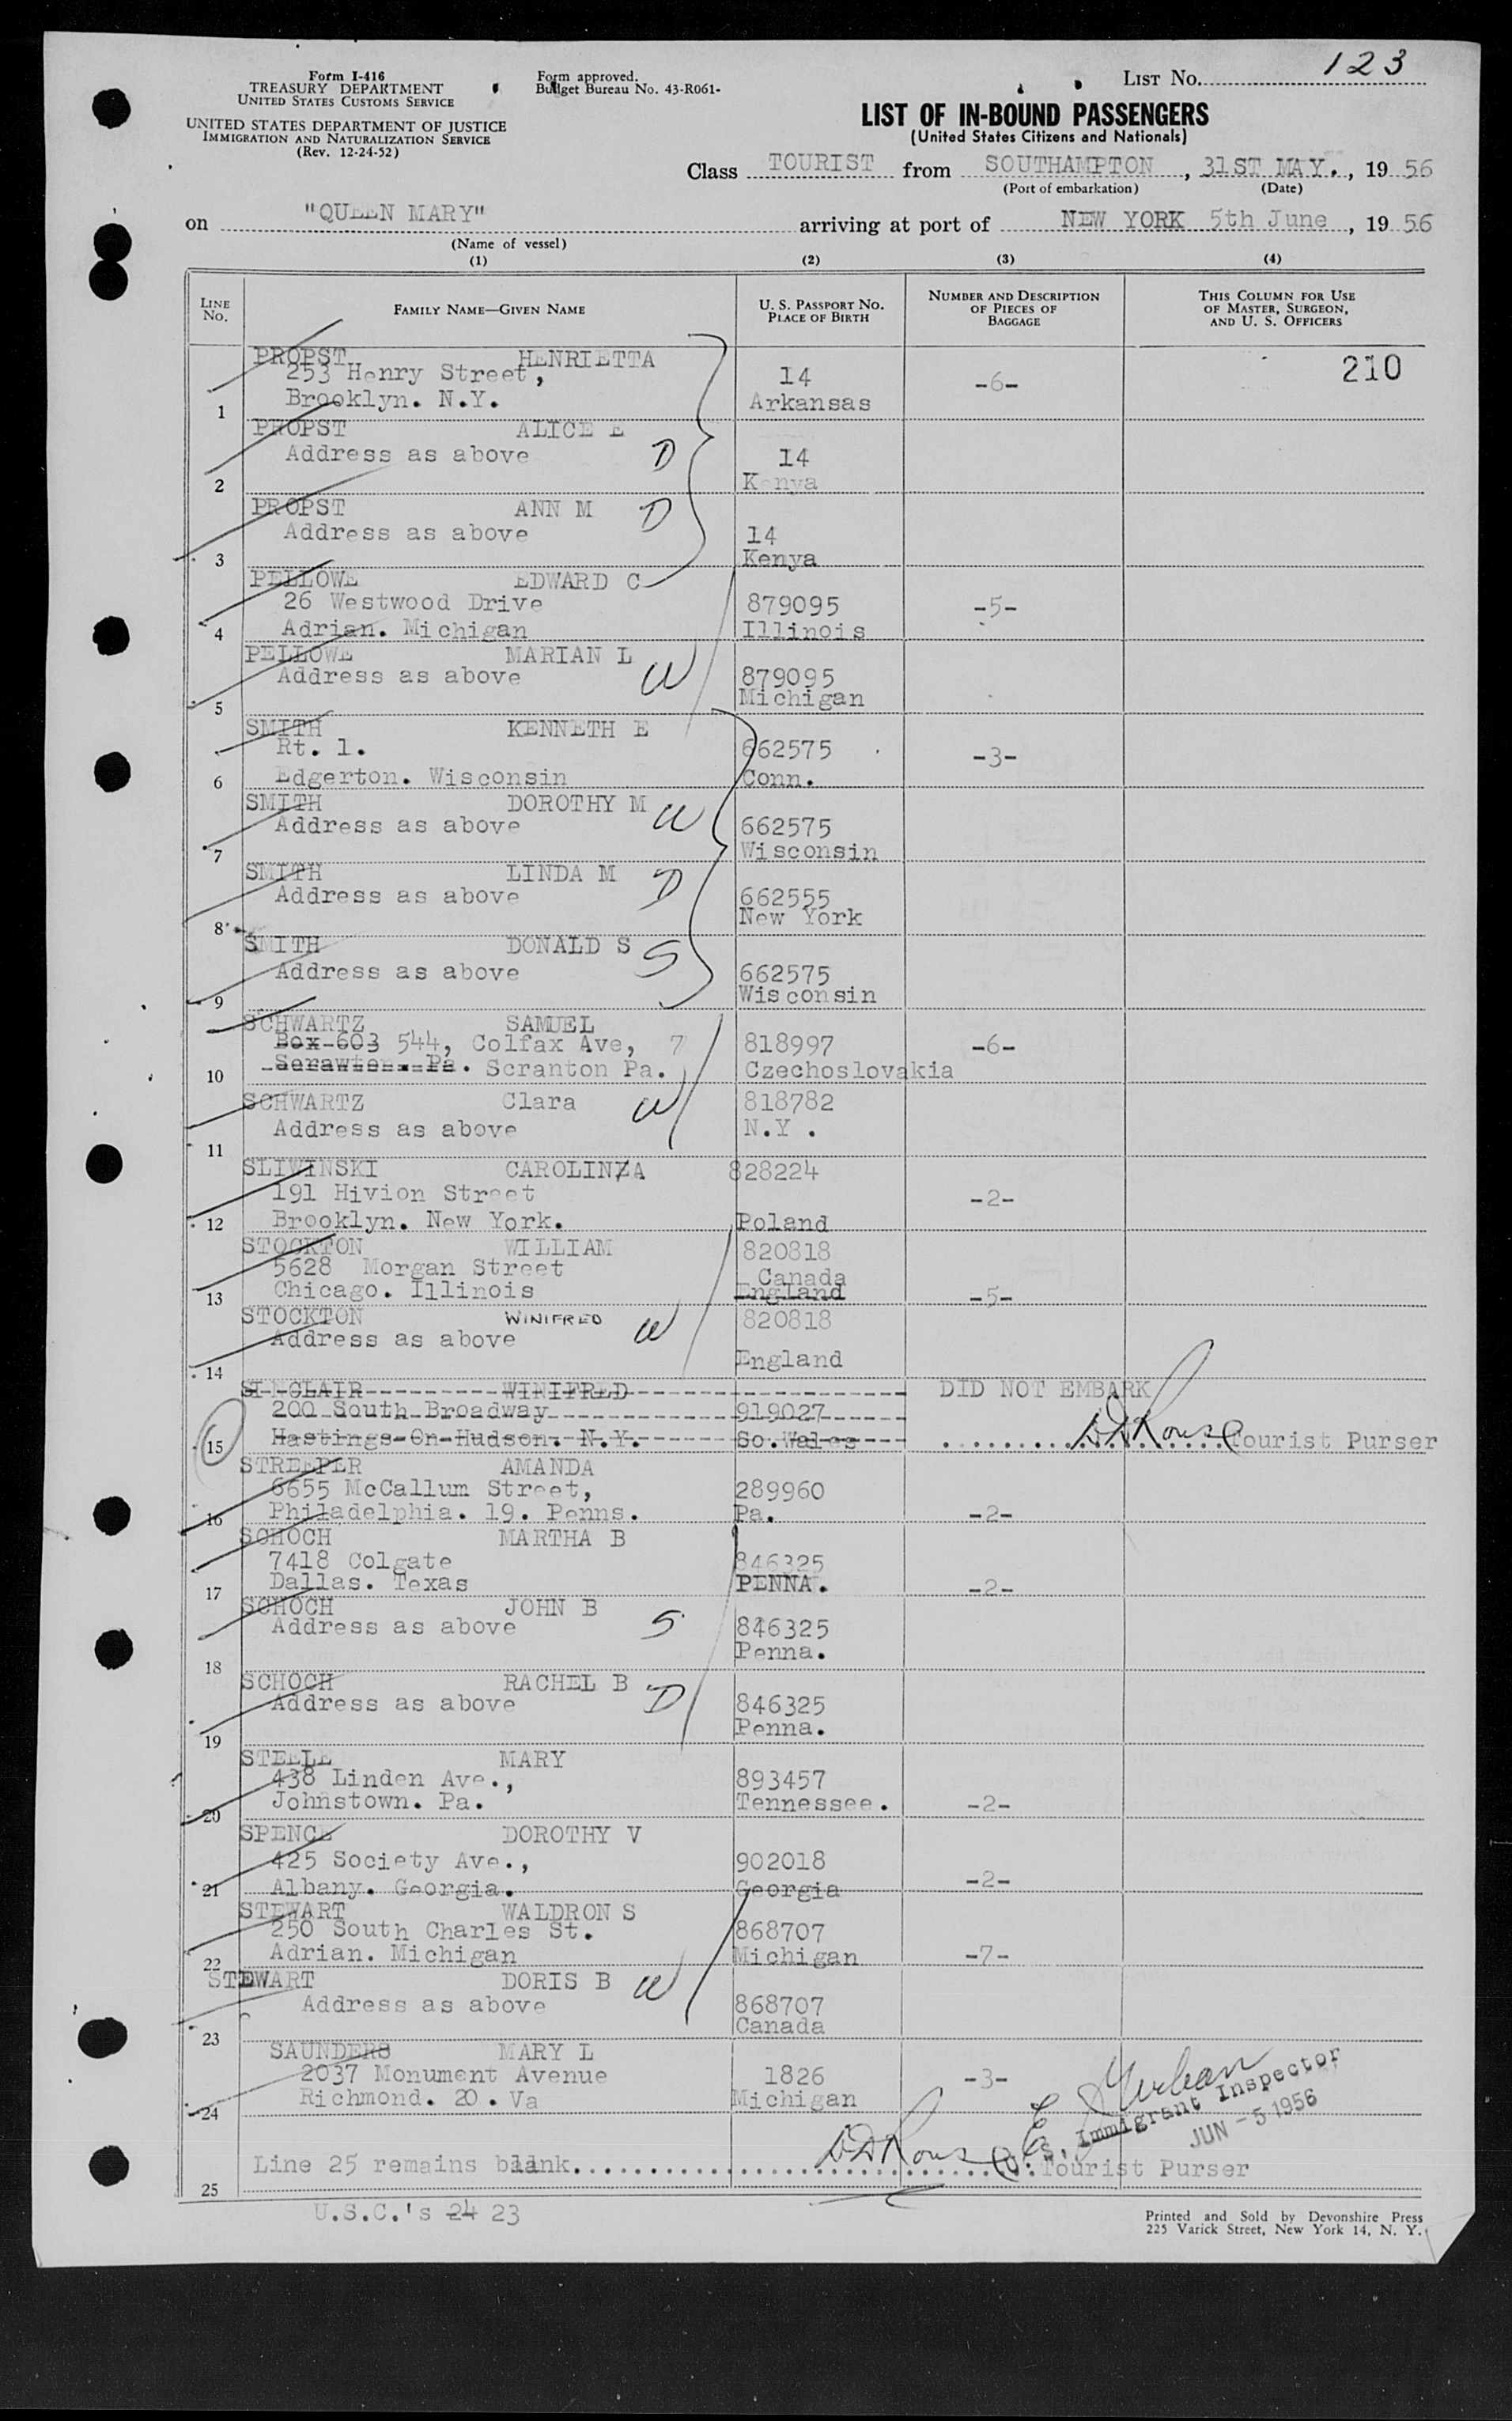 Form I-416
TREASURY DEPARTMENT
UNITED STATES CUSTOMS SERVICE
UNITED STATES DEPARTMENT OF JUSTICE
IMMIGRATION AND NATURALIZATION SERVICE
(Rev. 12-24-52)
Form approved.
Budget Bureau No. 43-R061-
LIST No. 123
LIST OF IN-BOUND PASSENGERS
(United States Citizens and Nationals)
Class TOURIST from SOUTHAMPTON, 31ST MAY., 19 56
(Port of embarkation) (Date)
on "QUEEN MARY" arriving at port of NEW YORK 5th June, 19 56
(Name of vessel)
(1) (2) (3) (4)
LINE No. FAMILY NAME—GIVEN NAME U. S. PASSPORT No. PLACE OF BIRTH NUMBER AND DESCRIPTION OF PIECES OF BAGGAGE THIS COLUMN FOR USE OF MASTER, SURGEON, AND U. S. OFFICERS
PROPST HENRIETTA 210
253 Henry Street, 14 -6-
1 Brooklyn. N.Y. Arkansas
PROPST ALICE E
Address as above D 14
2 Kenya
PROPST ANN M D
Address as above 14
3 Kenya
PELLOWE EDWARD C
26 Westwood Drive 879095 -5-
4 Adrian. Michigan Illinois
PELLOWE MARIAN L
Address as above W 879095
5 Michigan
SMITH KENNETH E
Rt. 1. 662575 -3-
6 Edgerton. Wisconsin Conn.
SMITH DOROTHY M W
Address as above 662575
7 Wisconsin
SMITH LINDA M D
Address as above 662555
8 New York
SMITH DONALD S S
Address as above 662575
9 Wisconsin
SCHWARTZ SAMUEL
Box-603 544, Colfax Ave, 7 818997 -6-
10 Serawton. Pa. Scranton Pa. Czechoslovakia
SCHWARTZ Clara W 818782
Address as above N.Y .
11
SLIWINSKI CAROLINA 828224
191 Hivion Street -2-
12 Brooklyn. New York. Poland
STOCKTON WILLIAM 820818
5628 Morgan Street Canada
13 Chicago. Illinois England -5-
STOCKTON WINIFRED W 820818
Address as above
14 England
SINCLAIR WINIFRED DID NOT EMBARK
200 South Broadway 919027
15 Hastings-On-Hudson. N.Y. So.Wales Tourist Purser
STREEPER AMANDA
6655 McCallum Street, 289960
16 Philadelphia. 19. Penns. Pa. -2-
SCHOCH MARTHA B
7418 Colgate 846325
17 Dallas. Texas PENNA. -2-
SCHOCH JOHN B
Address as above S 846325
18 Penna.
SCHOCH RACHEL B D
Address as above 846325
19 Penna.
STEELE MARY
438 Linden Ave., 893457
20 Johnstown. Pa. Tennessee. -2-
SPENCE DOROTHY V
425 Society Ave., 902018
21 Albany. Georgia. Georgia -2-
STEWART WALDRON S
250 South Charles St. 868707
22 Adrian. Michigan Michigan -7-
STEWART DORIS B W
Address as above 868707
23 Canada
SAUNDERS MARY L
2037 Monument Avenue 1826 -3-
24 Richmond. 20. Va Michigan
U.S. Immigrant Inspector
JUN -5 1956
25 Line 25 remains blank. Tourist Purser
U.S.C.'s 24 23
Printed and Sold by Devonshire Press
225 Varick Street, New York 14, N. Y.